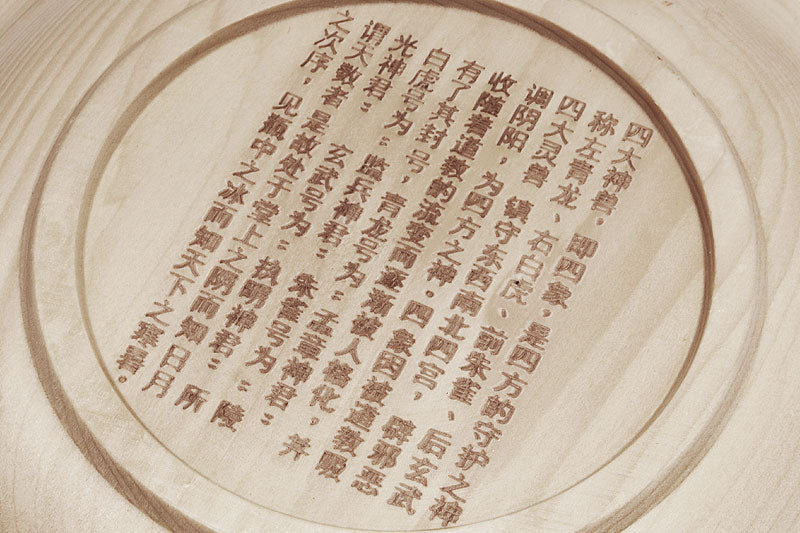 四大神兽，即四象，是四方的守护之神
称左青龙、右白虎、前朱雀、后玄武
四大灵兽，镇守东西南北四宫，辟邪恶
调阴阳，为四方之神。四象因被道教吸
收随着道教的流变而逐渐被人格化，并
有了其封号，青龙号为：孟章神君；
白虎号为：监兵神君；朱雀号为：陵
光神君；玄武号为：执明神君；所
谓大数者是故处于堂上之阴而知日月
之次序，见瓶中之冰而知天下之寒暑。